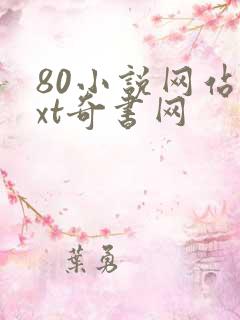 80小説网佔
xt奇書网
葉勇